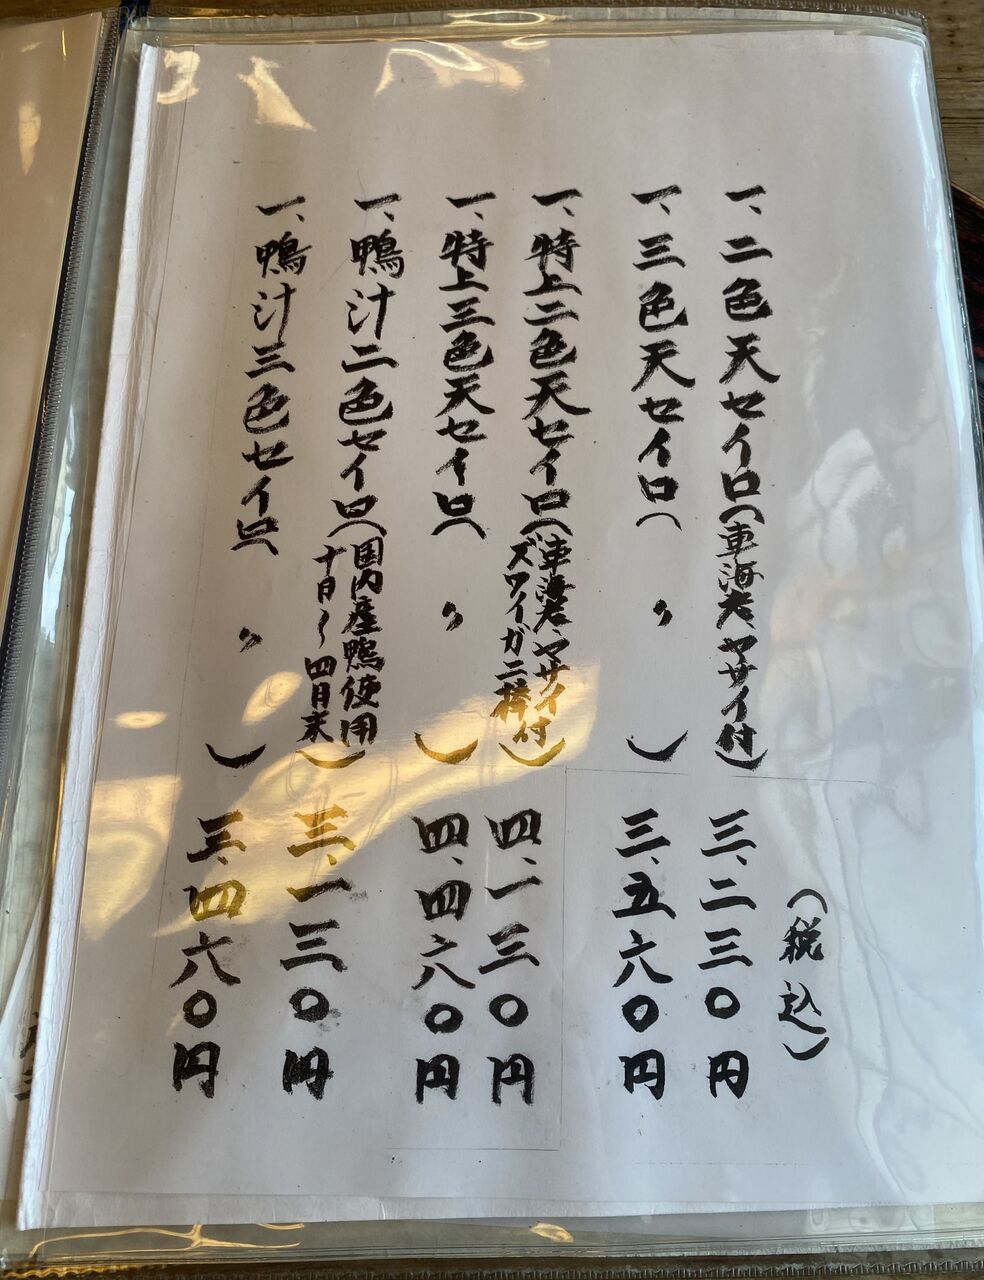 (税込)
一、二色天セイロ(車海老、ヤサイ付) 三、二三〇円
一、三色天セイロ( 〃 ) 三、五六〇円
一、特上二色天セイロ(車海老、ヤサイ付 ズワイガニ棒付) 四、一三〇円
一、特上三色天セイロ( 〃 ) 四、四六〇円
一、鴨汁二色セイロ(国内産鴨使用 十月〜四月末) 三、一三〇円
一、鴨汁三色セイロ( 〃 ) 三、四六〇円